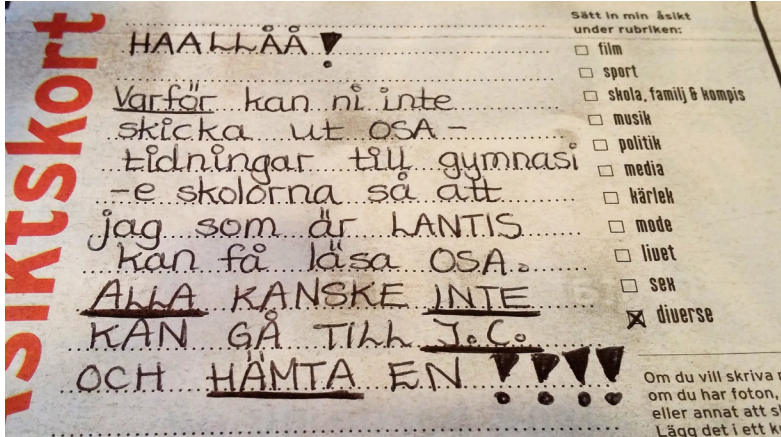 Åsiktskort
HAALLÅÅ!
Varför kan ni inte
skicka ut OSA-
tidningar till gymnasi
-e skolorna så att
jag som är LANTIS
kan få läsa OSA.
ALLA KANSKE INTE
KAN GÅ TILL J.C.
OCH HÄMTA EN !!!!
Sätt in min åsikt
under rubriken:
film
sport
skola, familj & kompis
musik
politik
media
kärlek
mode
livet
sex
diverse
Om du vill skriva
om du har foton,
eller annat att
Lägg det i ett